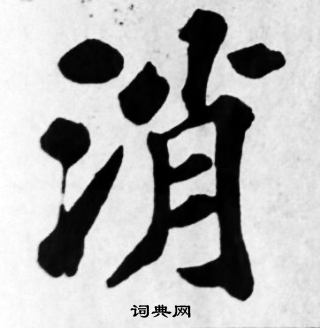 消
词典网